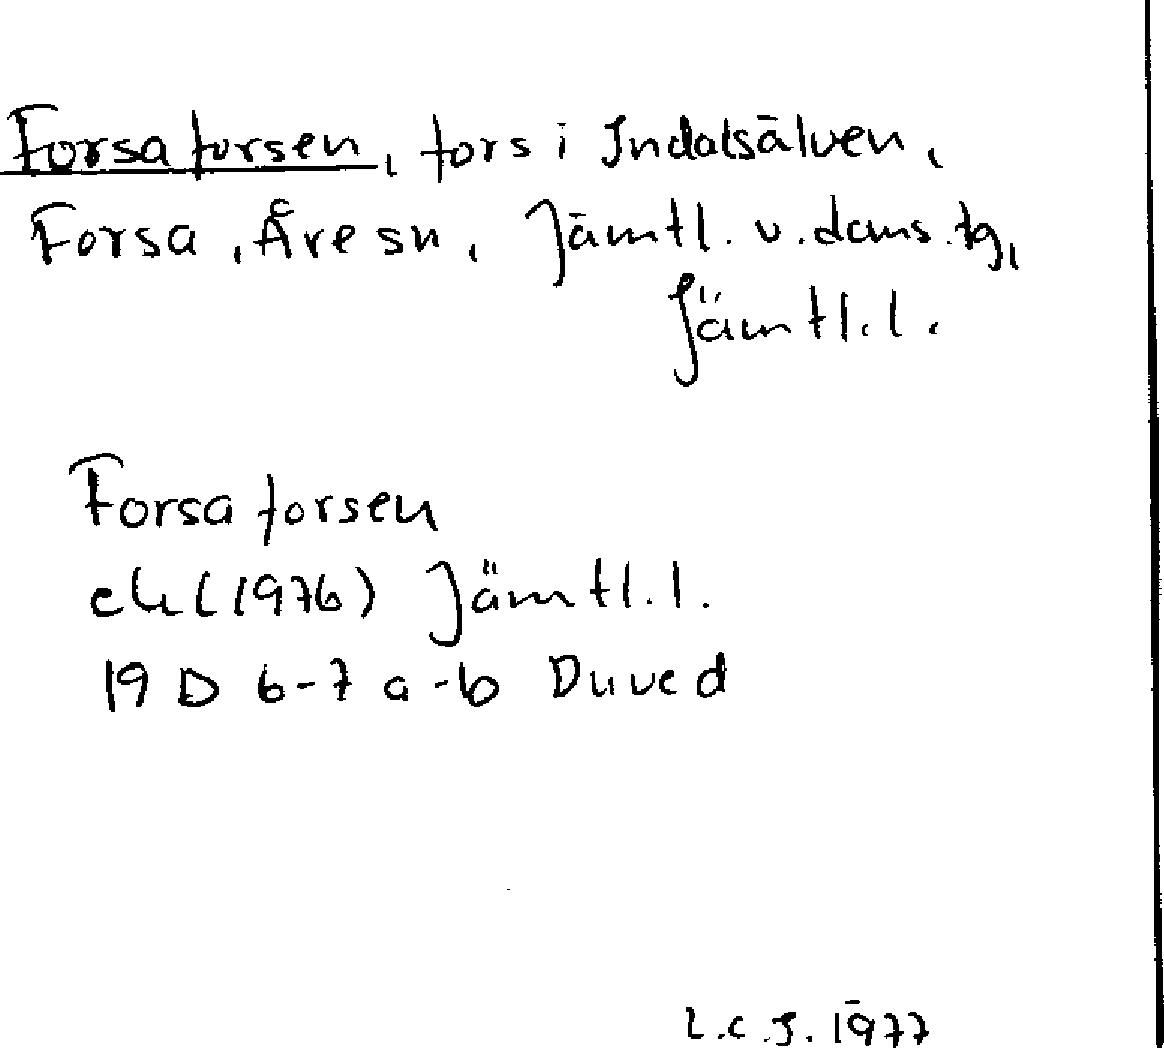 Forsaforsen, fors i Indalsälven,
Forsa, Åre sn, Jämtl. v. doms. tg,
Jämtl. l.
Forsaforsen
ek (1976) Jämtl. l.
19 D 6-7 a-b Duved
L.C.J. 1977